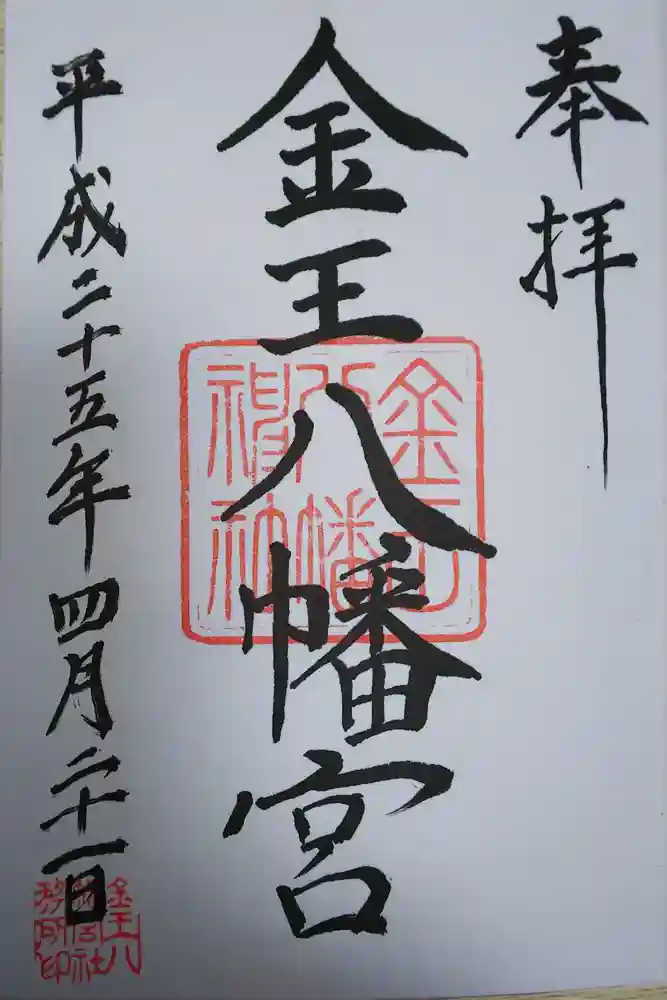 奉拝
金王八幡宮
平成二十五年四月二十一日
金王
八幡
神社
金王八
幡宮社
務所印